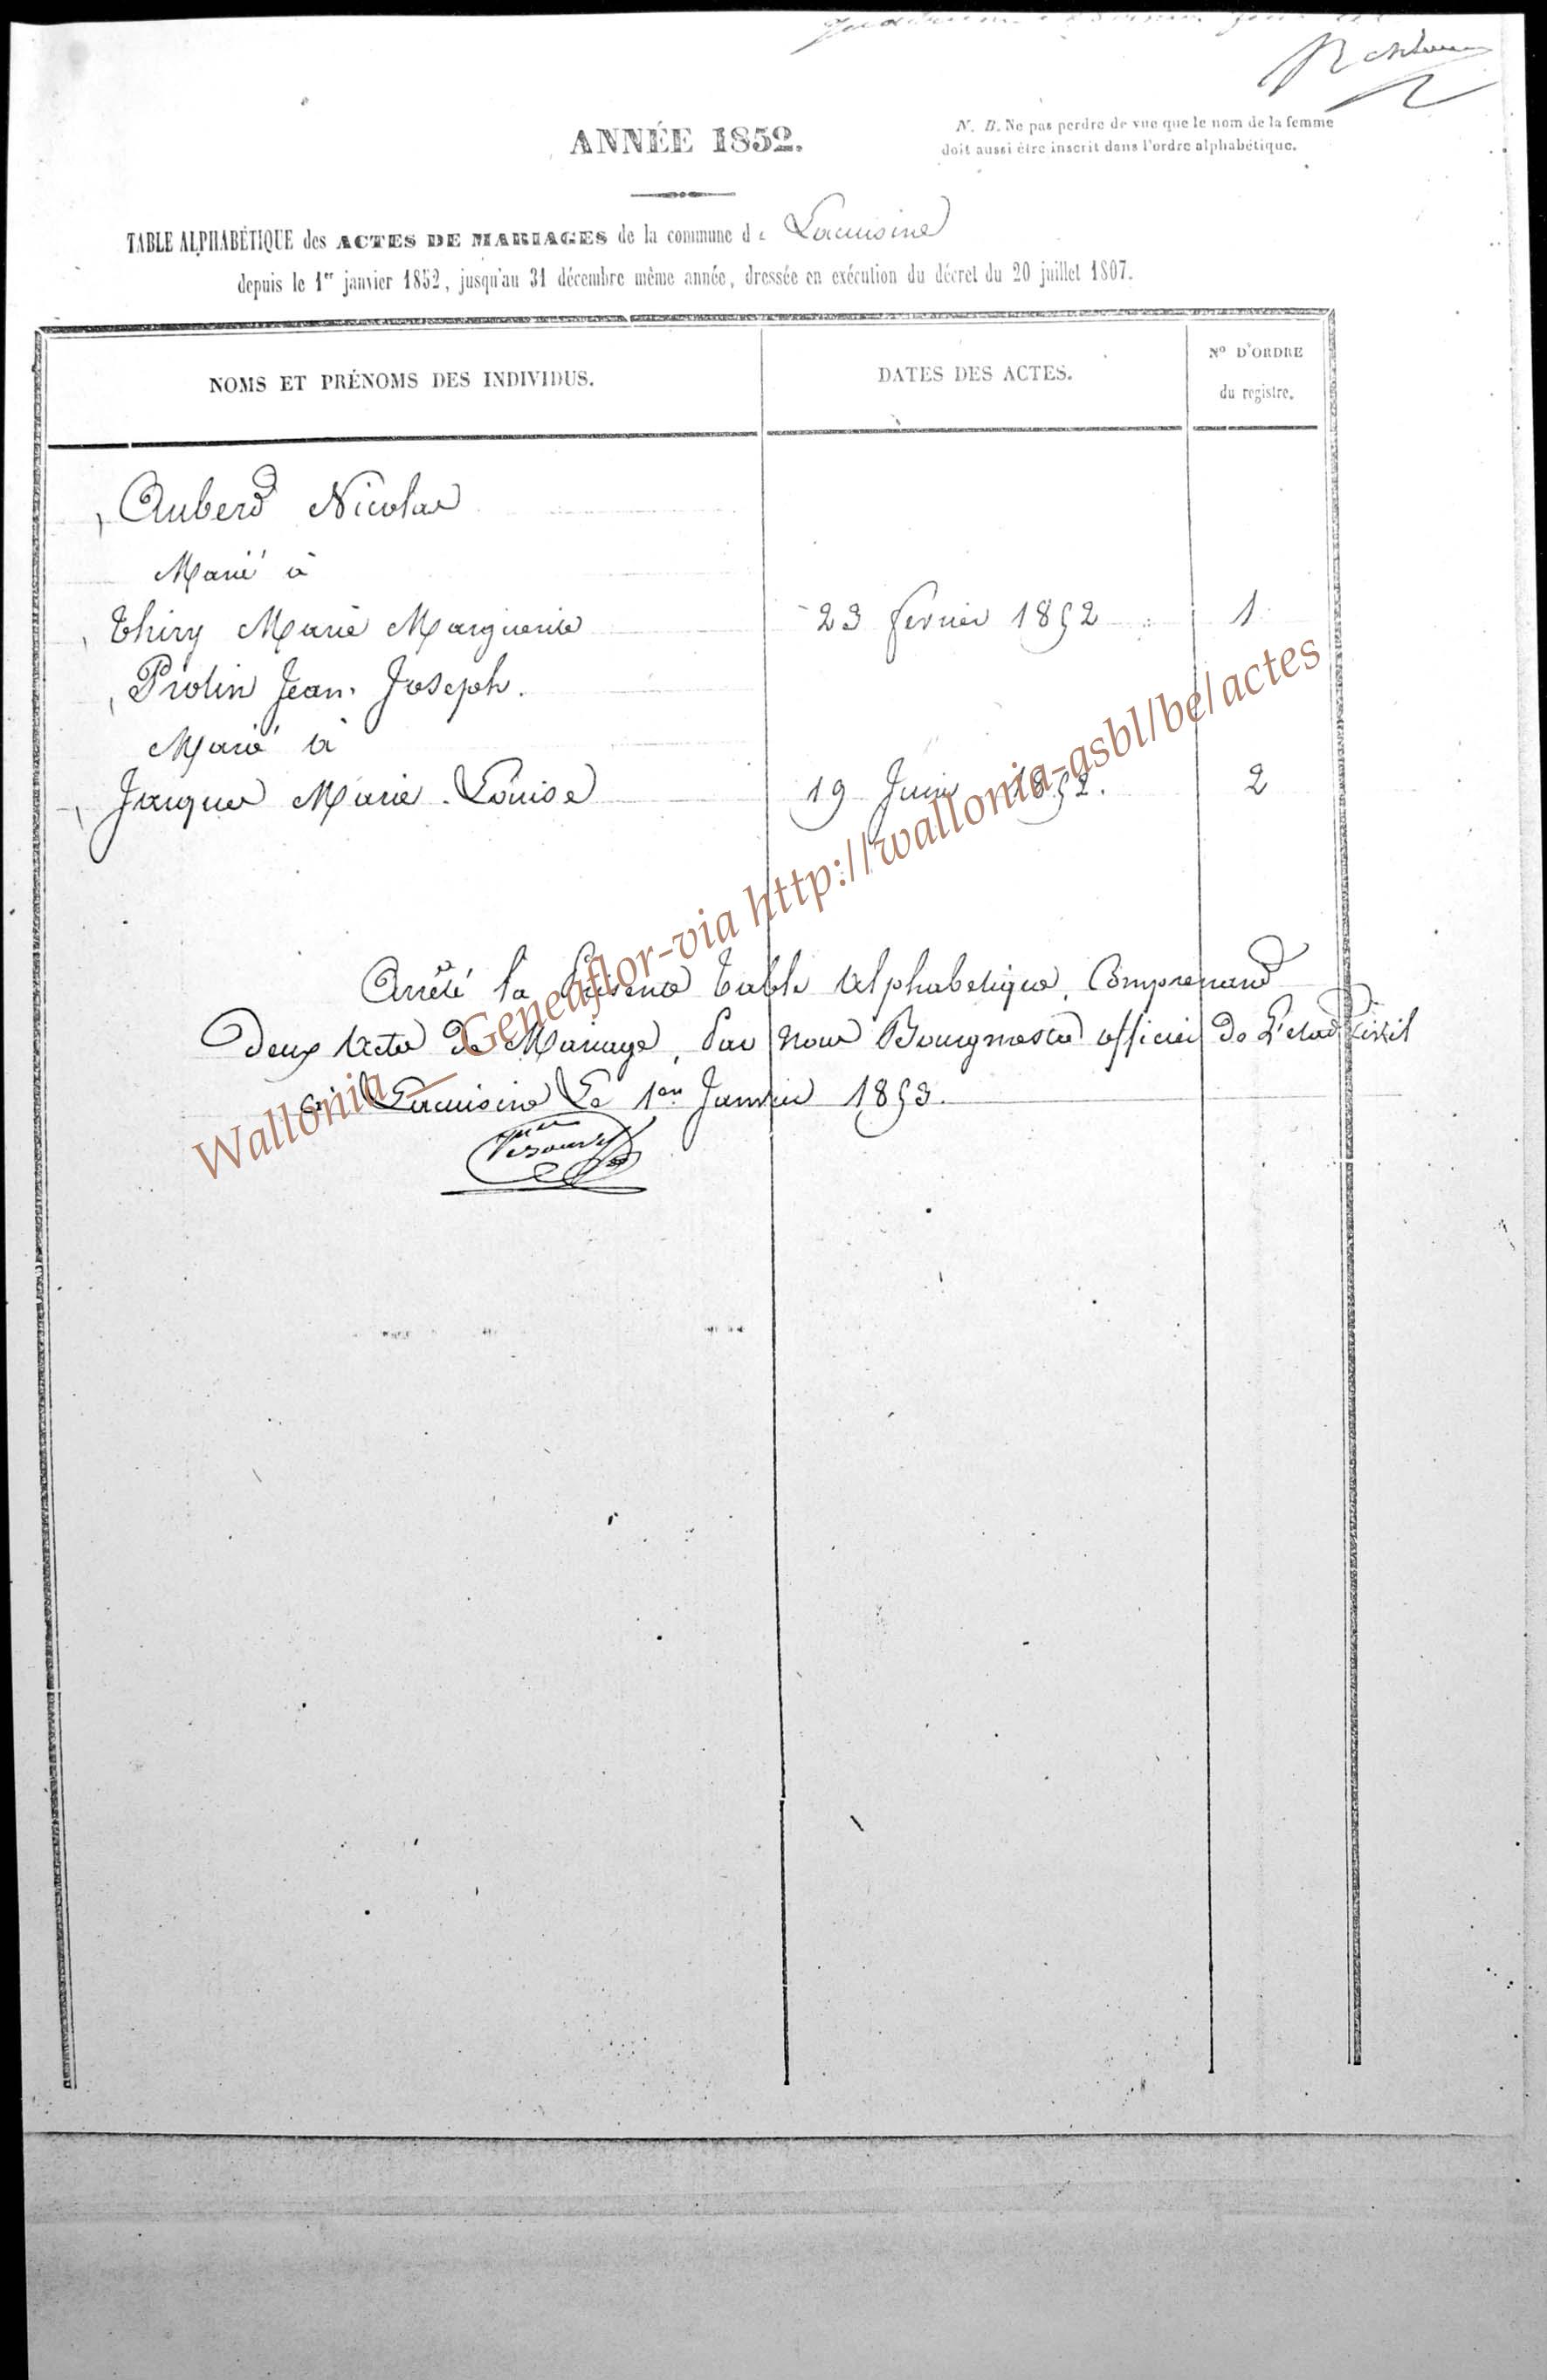 N. B. Ne pas perdre de vue que le nom de la femme
doit aussi être inscrit dans l'ordre alphabétique.
ANNÉE 1852.
TABLE ALPHABÉTIQUE des ACTES DE MARIAGES de la commune de Lacuisine
depuis le 1er janvier 1852, jusqu'au 31 décembre même année, dressée en exécution du décret du 20 juillet 1807.
NOMS ET PRÉNOMS DES INDIVIDUS. DATES DES ACTES. No D'ORDRE
du registre.
Auberd Nicolas
Marié à
Thiry Marie Marguerite 23 fevrier 1852 1
Pierre Jean Joseph.
Marié à
Jacques Marie Louise 19 Juin 1852. 2
Arrêté la Présente Table Alphabetique, Comprenand
deux Actes de Mariage, Par nous Bourgmestre officier de L'etad Civil
à Lacuisine Le 1er Janvier 1853.
Wallonia — Geneaflor-via http://wallonia-asbl/be/actes